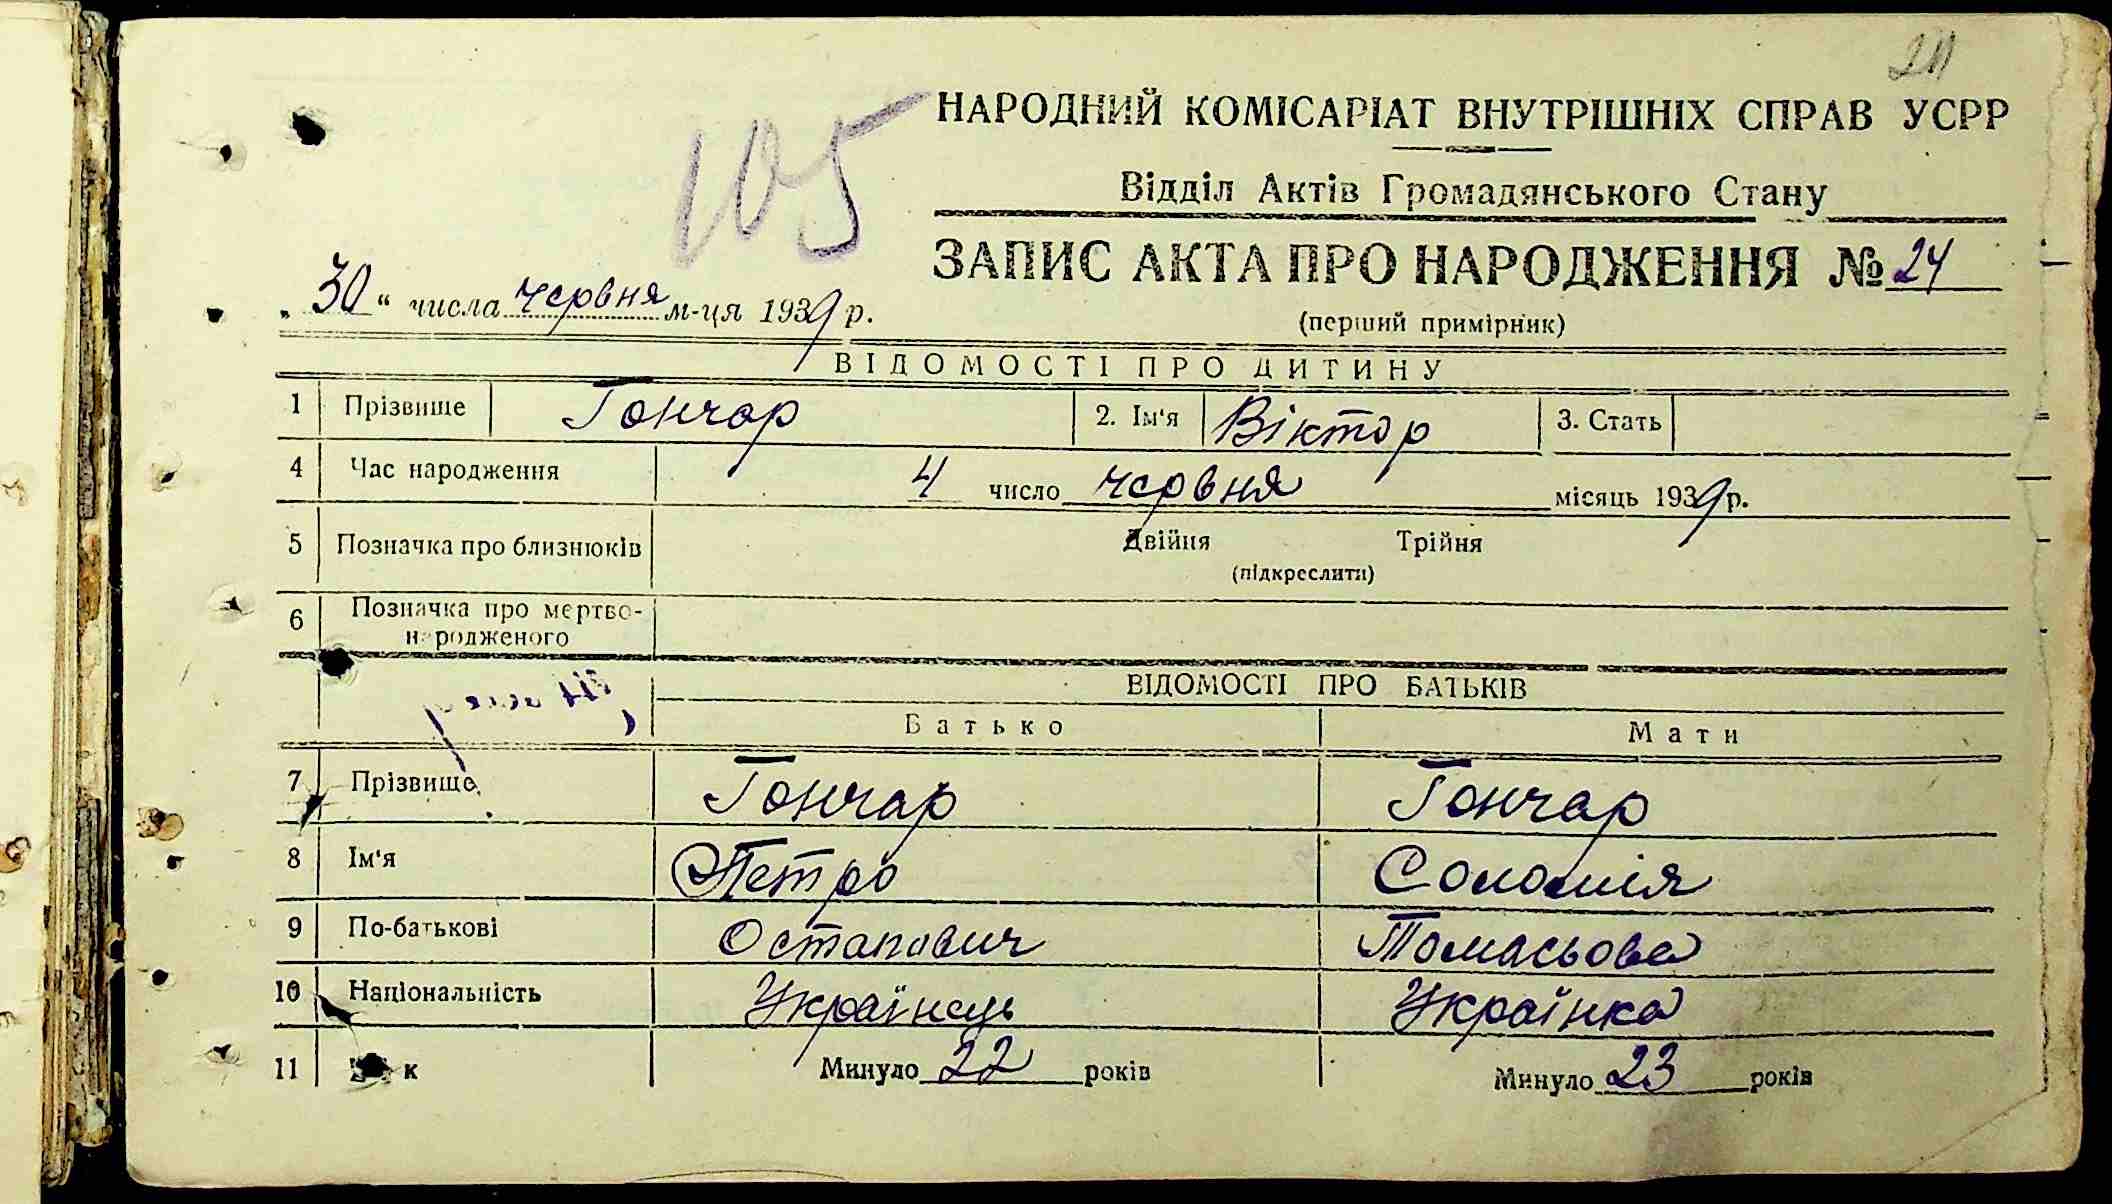 НАРОДНИЙ КОМІСАРІАТ ВНУТРІШНІХ СПРАВ УСРР
105
Відділ Актів Громадянського Стану
ЗАПИС АКТА ПРО НАРОДЖЕННЯ № 24
„30“ числа червня м-ця 1939 р.
(перший примірник)
ВІДОМОСТІ ПРО ДИТИНУ
1 Прізвище Гончар 2. Ім'я Віктор 3. Стать
4 Час народження 4 число червня місяць 1939 р.
5 Позначка про близнюків Двійня Трійня
(підкреслити)
6 Позначка про мертво-
народженого
ВІДОМОСТІ ПРО БАТЬКІВ
Батько Мати
7 Прізвище Гончар Гончар
8 Ім'я Петро Соломія
9 По-батькові Остапович Томасьова
10 Національність Українець Українка
11 к Минуло 22 років Минуло 23 років